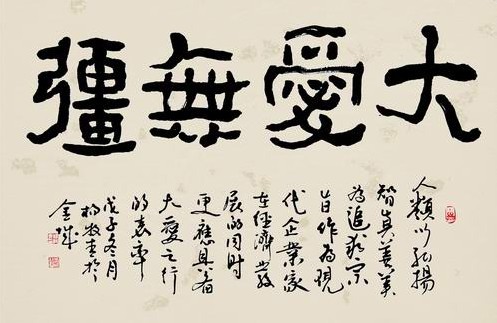 大愛無疆
人類以弘揚
智真善美
為追求宗
旨作為現
代企業家
在經濟發
展的同時
更應具有
大愛之行
的表率
戊子冬月
楊牧青於
金城